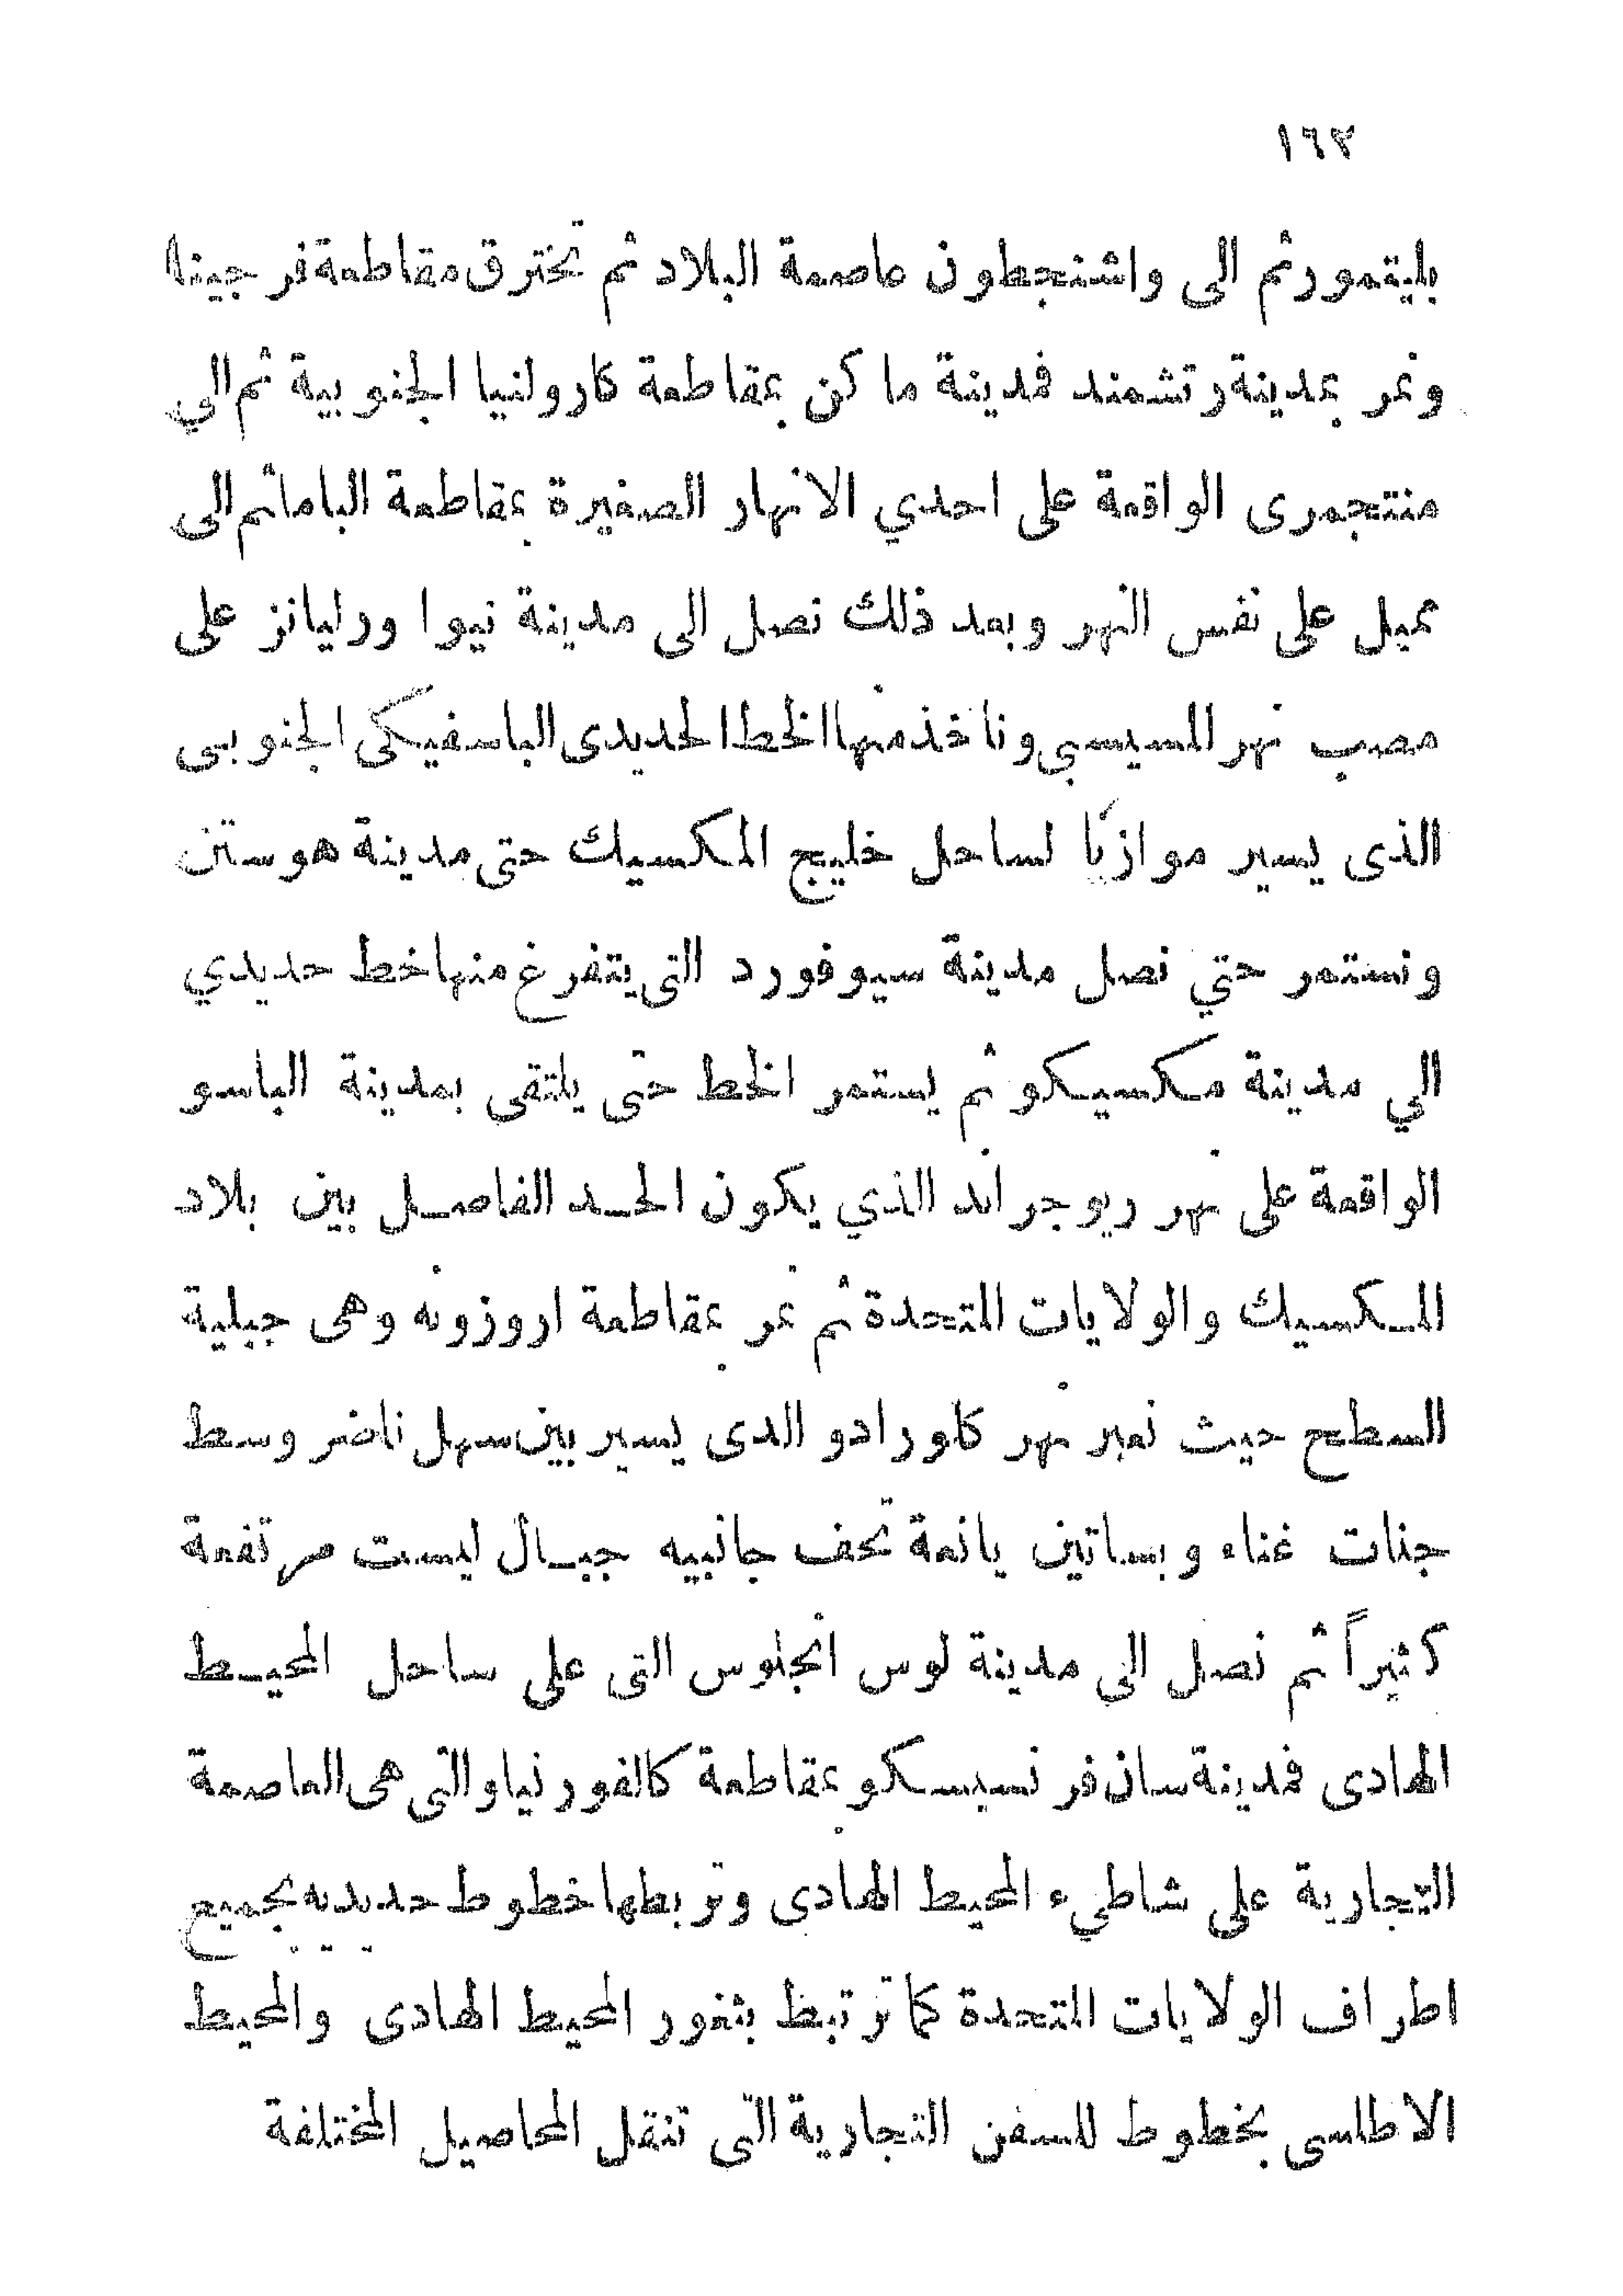 ١٦٢
بليتمور ثم الى واشنجطون عاصمة البلاد ثم تخترق مقاطعة فرجينا
ونمر بمدينة رتشمند فمدينة ماكن بمقاطعة كارولنيا الجنوبية ثم الي
منتجمرى الواقعة على احدي الانهار الصغيرة بمقاطعة الباما ثم الى
ممبل على نفس النهر وبعد ذلك نصل الى مدينة نيوا ورليانز على
مصب نهر المسيسبي ونأخذ منها الخط الحديدى الباسفيكى الجنوبى
الذى يسير موازيًا لساحل خليج المكسيك حتى مدينة هوستن
ونستمر حتي نصل مدينة سيوفورد التى يتفرغ منها خط حديدي
الي مدينة مكسيكو ثم يستمر الخط حتى يلتقى بمدينة الباسو
الواقعة على نهر ريوجراند الذي يكون الحد الفاصل بين بلاد
المكسيك والولايات المتحدة ثم نمر بمقاطعة اروزونه وهى جبلية
السطح حيث نعبر نهر كلورادو الدى يسير بين سهل ناضر وسط
جنات غناء وبساتين يانعة تحف جانبيه جبال ليست مرتفعة
كثيراً ثم نصل الى مدينة لوس انجلوس التى على ساحل المحيط
الهادى فمدينة سان فرنسيسكو بمقاطعة كالفورنيا والتى هى العاصمة
التجارية على شاطيء المحيط الهادى وتربطها خطوط حديديه بجميع
اطراف الولايات المتحدة كما ترتبط بثغور المحيط الهادى والمحيط
الاطلسى بخطوط للسفن التجارية التى تنقل المحاصيل المختلفة